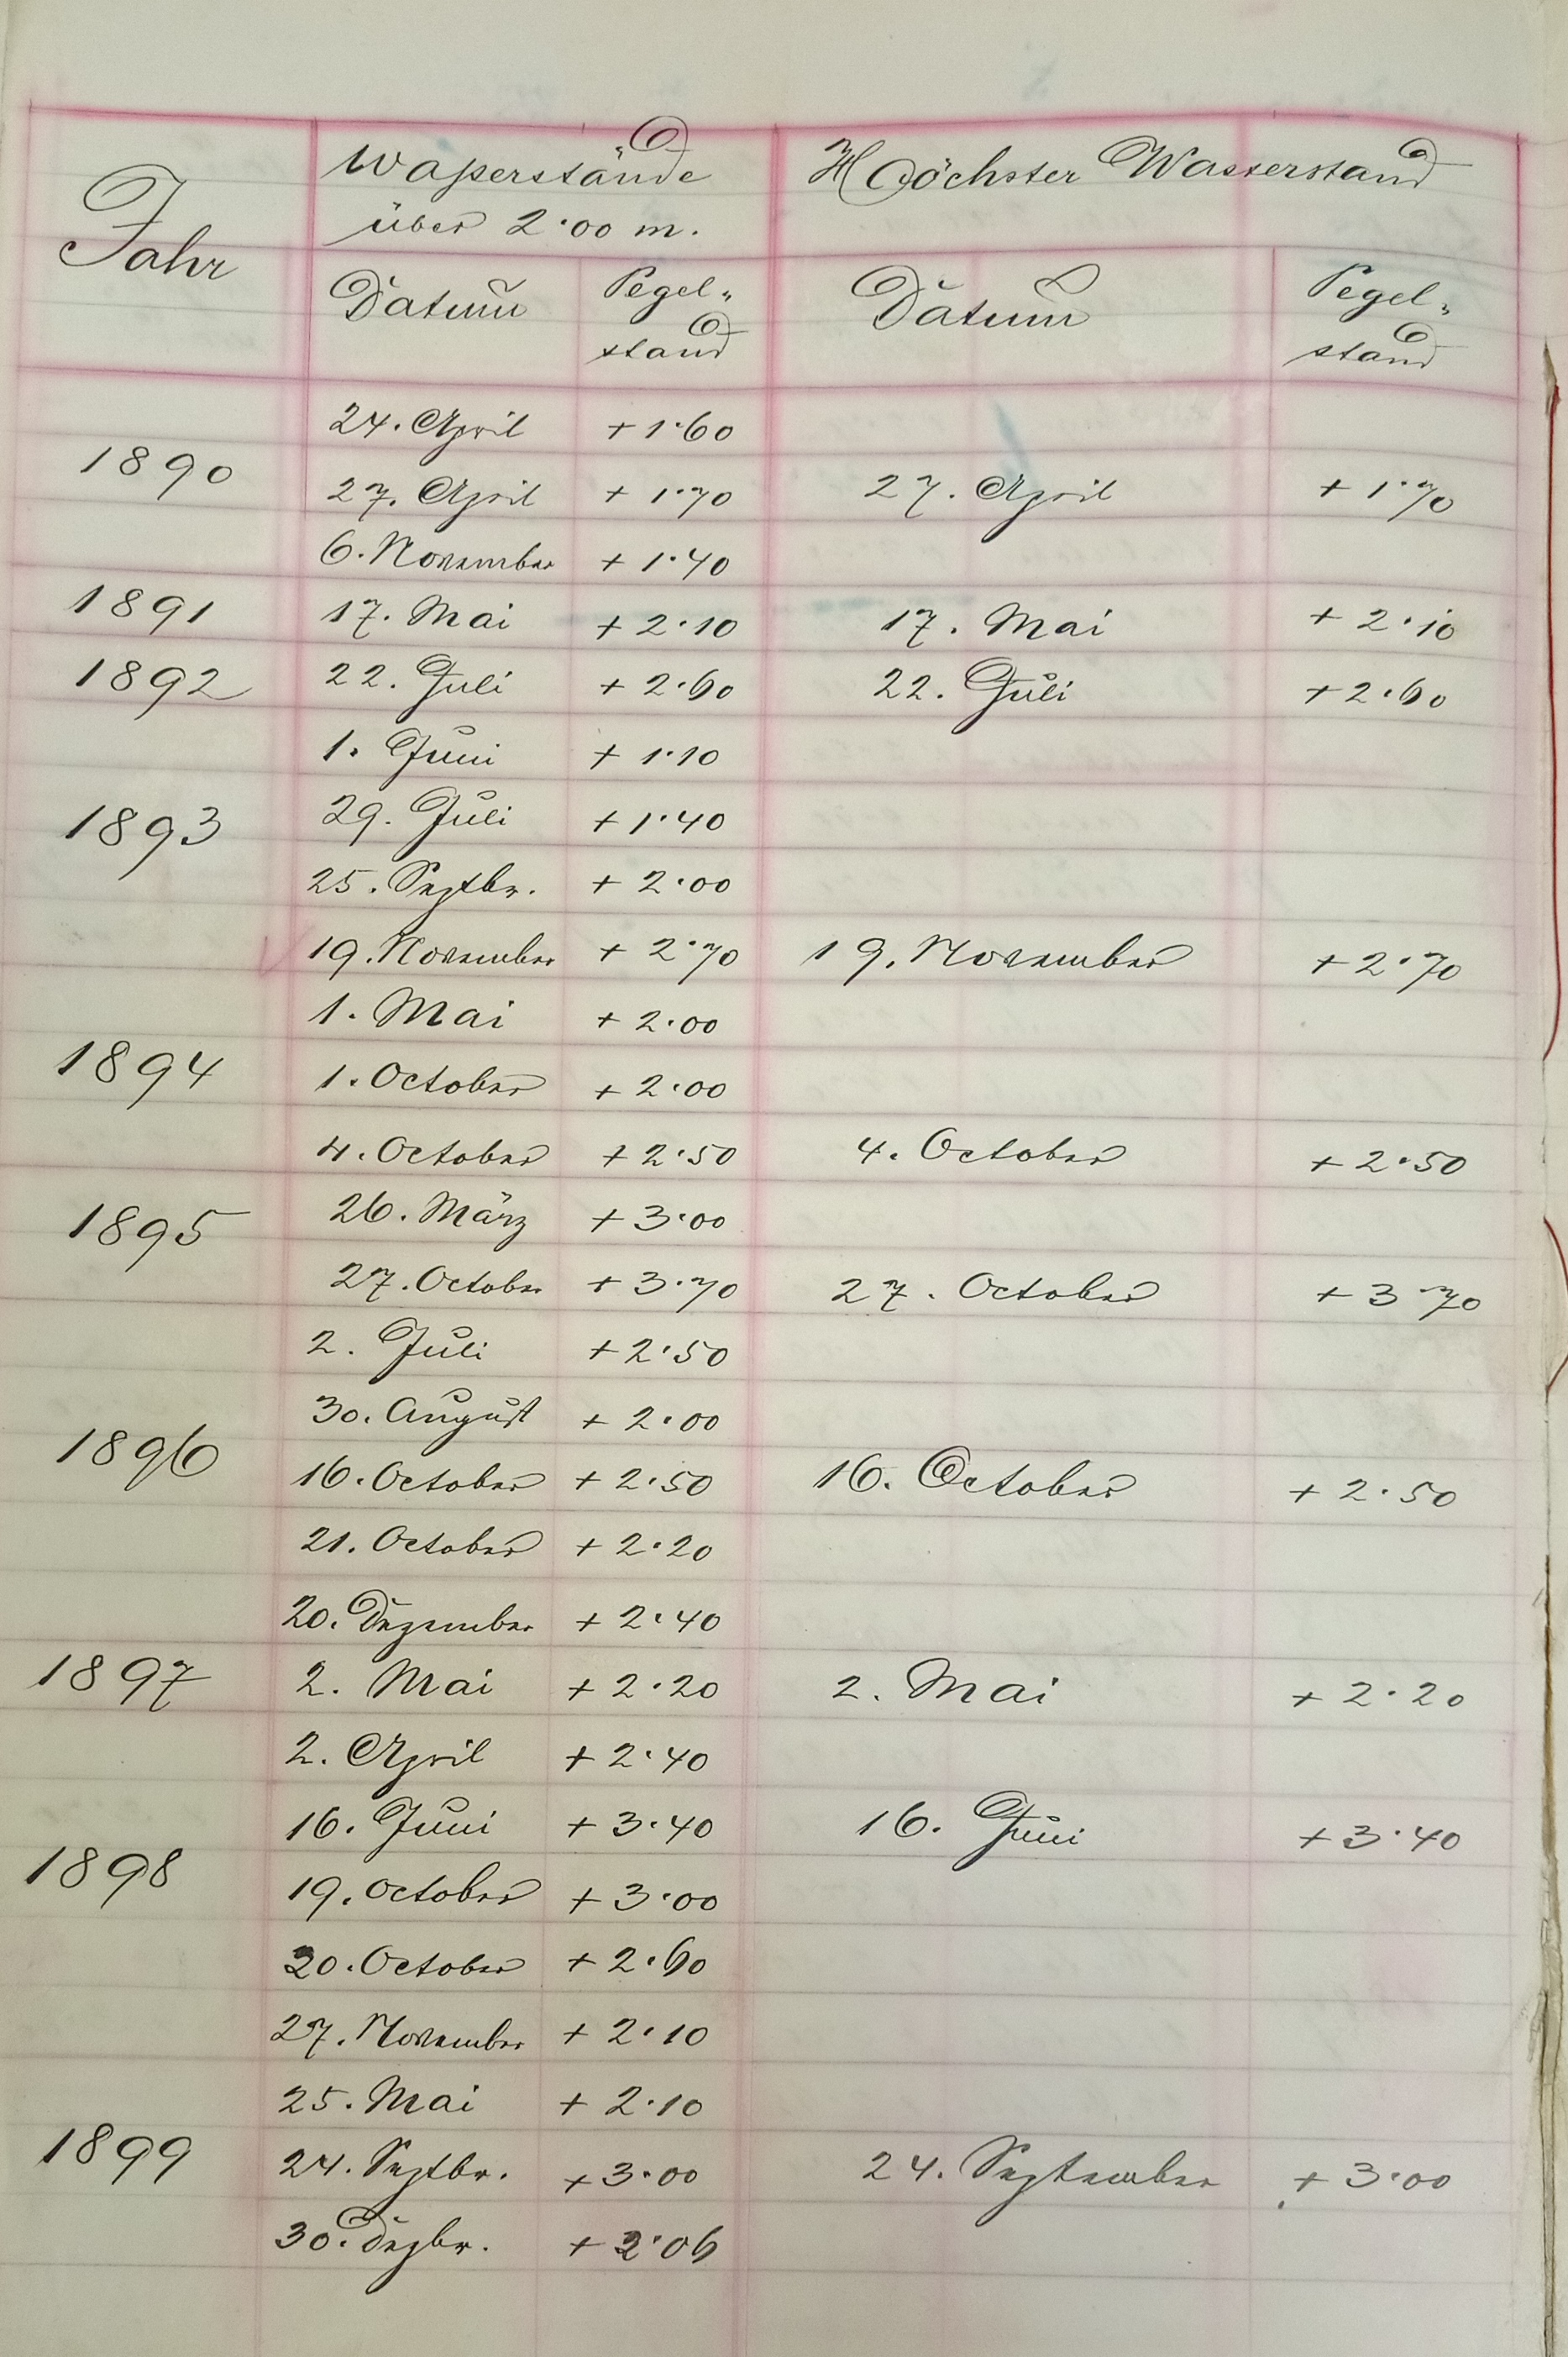 Jahr
Wasserstände
über 2·00 m.
Höchster Wasserstand
Datum
Pegel-
stand
Datum
Pegel-
stand
24. April +1·60
1890
27. April +1·70 27. April +1·70
6. November +1·40
1891 17. Mai +2·10 17. Mai +2·10
1892 22. Juli +2·60 22. Juli +2·60
1. Juni +1·10
1893 29. Juli +1·40
25. Septbr. +2·00
19. November +2·70 19. November +2·70
1. Mai +2·00
1894 1. October +2·00
4. October +2·50 4. October +2·50
1895 26. März +3·00
27. October +3·70 27. October +3·70
2. Juli +2·50
30. August +2·00
1896 16. October +2·50 16. October +2·50
21. October +2·20
20. Dezember +2·40
1897 2. Mai +2·20 2. Mai +2·20
2. April +2·40
16. Juni +3·40 16. Juni +3·40
1898 19. October +3·00
20. October +2·60
27. November +2·10
25. Mai +2·10
1899 24. Septbr. +3·00 24. September +3·00
30. Dezbr. +2·06